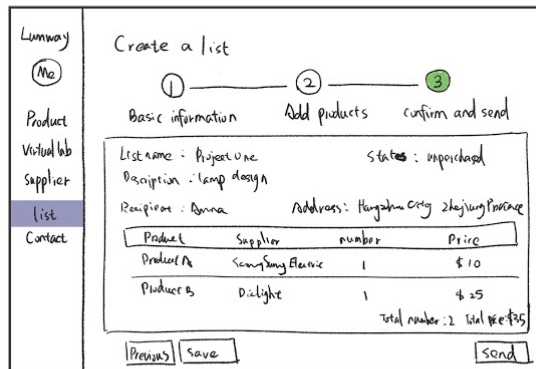 Lumway
Me
Product
Virtual lab
Supplier
list
Contact
Create a list
1 2 3
Basic information Add products confirm and send
List name : Project one States : unpurchased
Description : lamp design
Recipient : Anna Address : Hangzhou City Zhejiang Province
Product Supplier number Price
Product A SamySung Electric 1 $10
Product B Dialight 1 $25
Total number : 2 Total price : $35
Previous save send